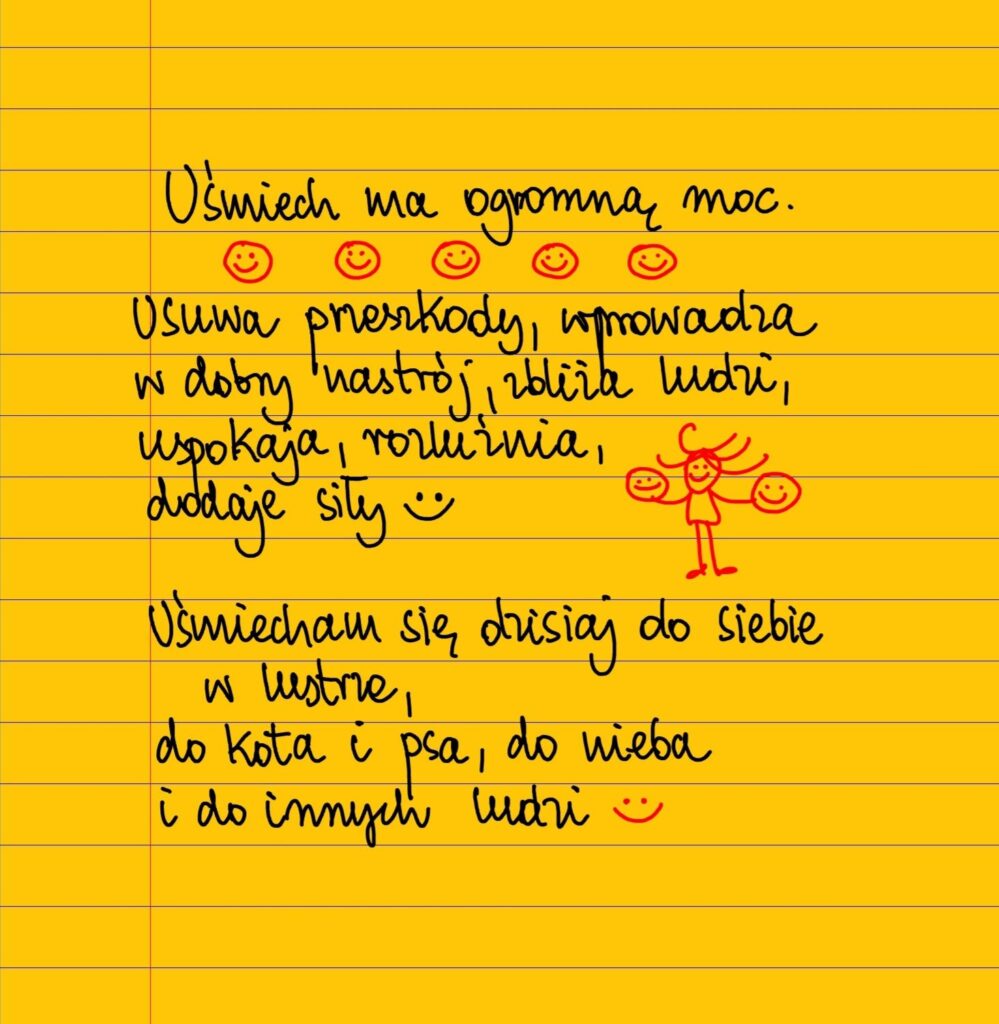 Uśmiech ma ogromną moc.
Usuwa przeszkody, wprowadza
w dobry nastrój, zbliża ludzi,
uspokaja, rozluźnia,
dodaje siły
Uśmiecham się dzisiaj do siebie
w lustrze,
do kota i psa, do nieba
i do innych ludzi